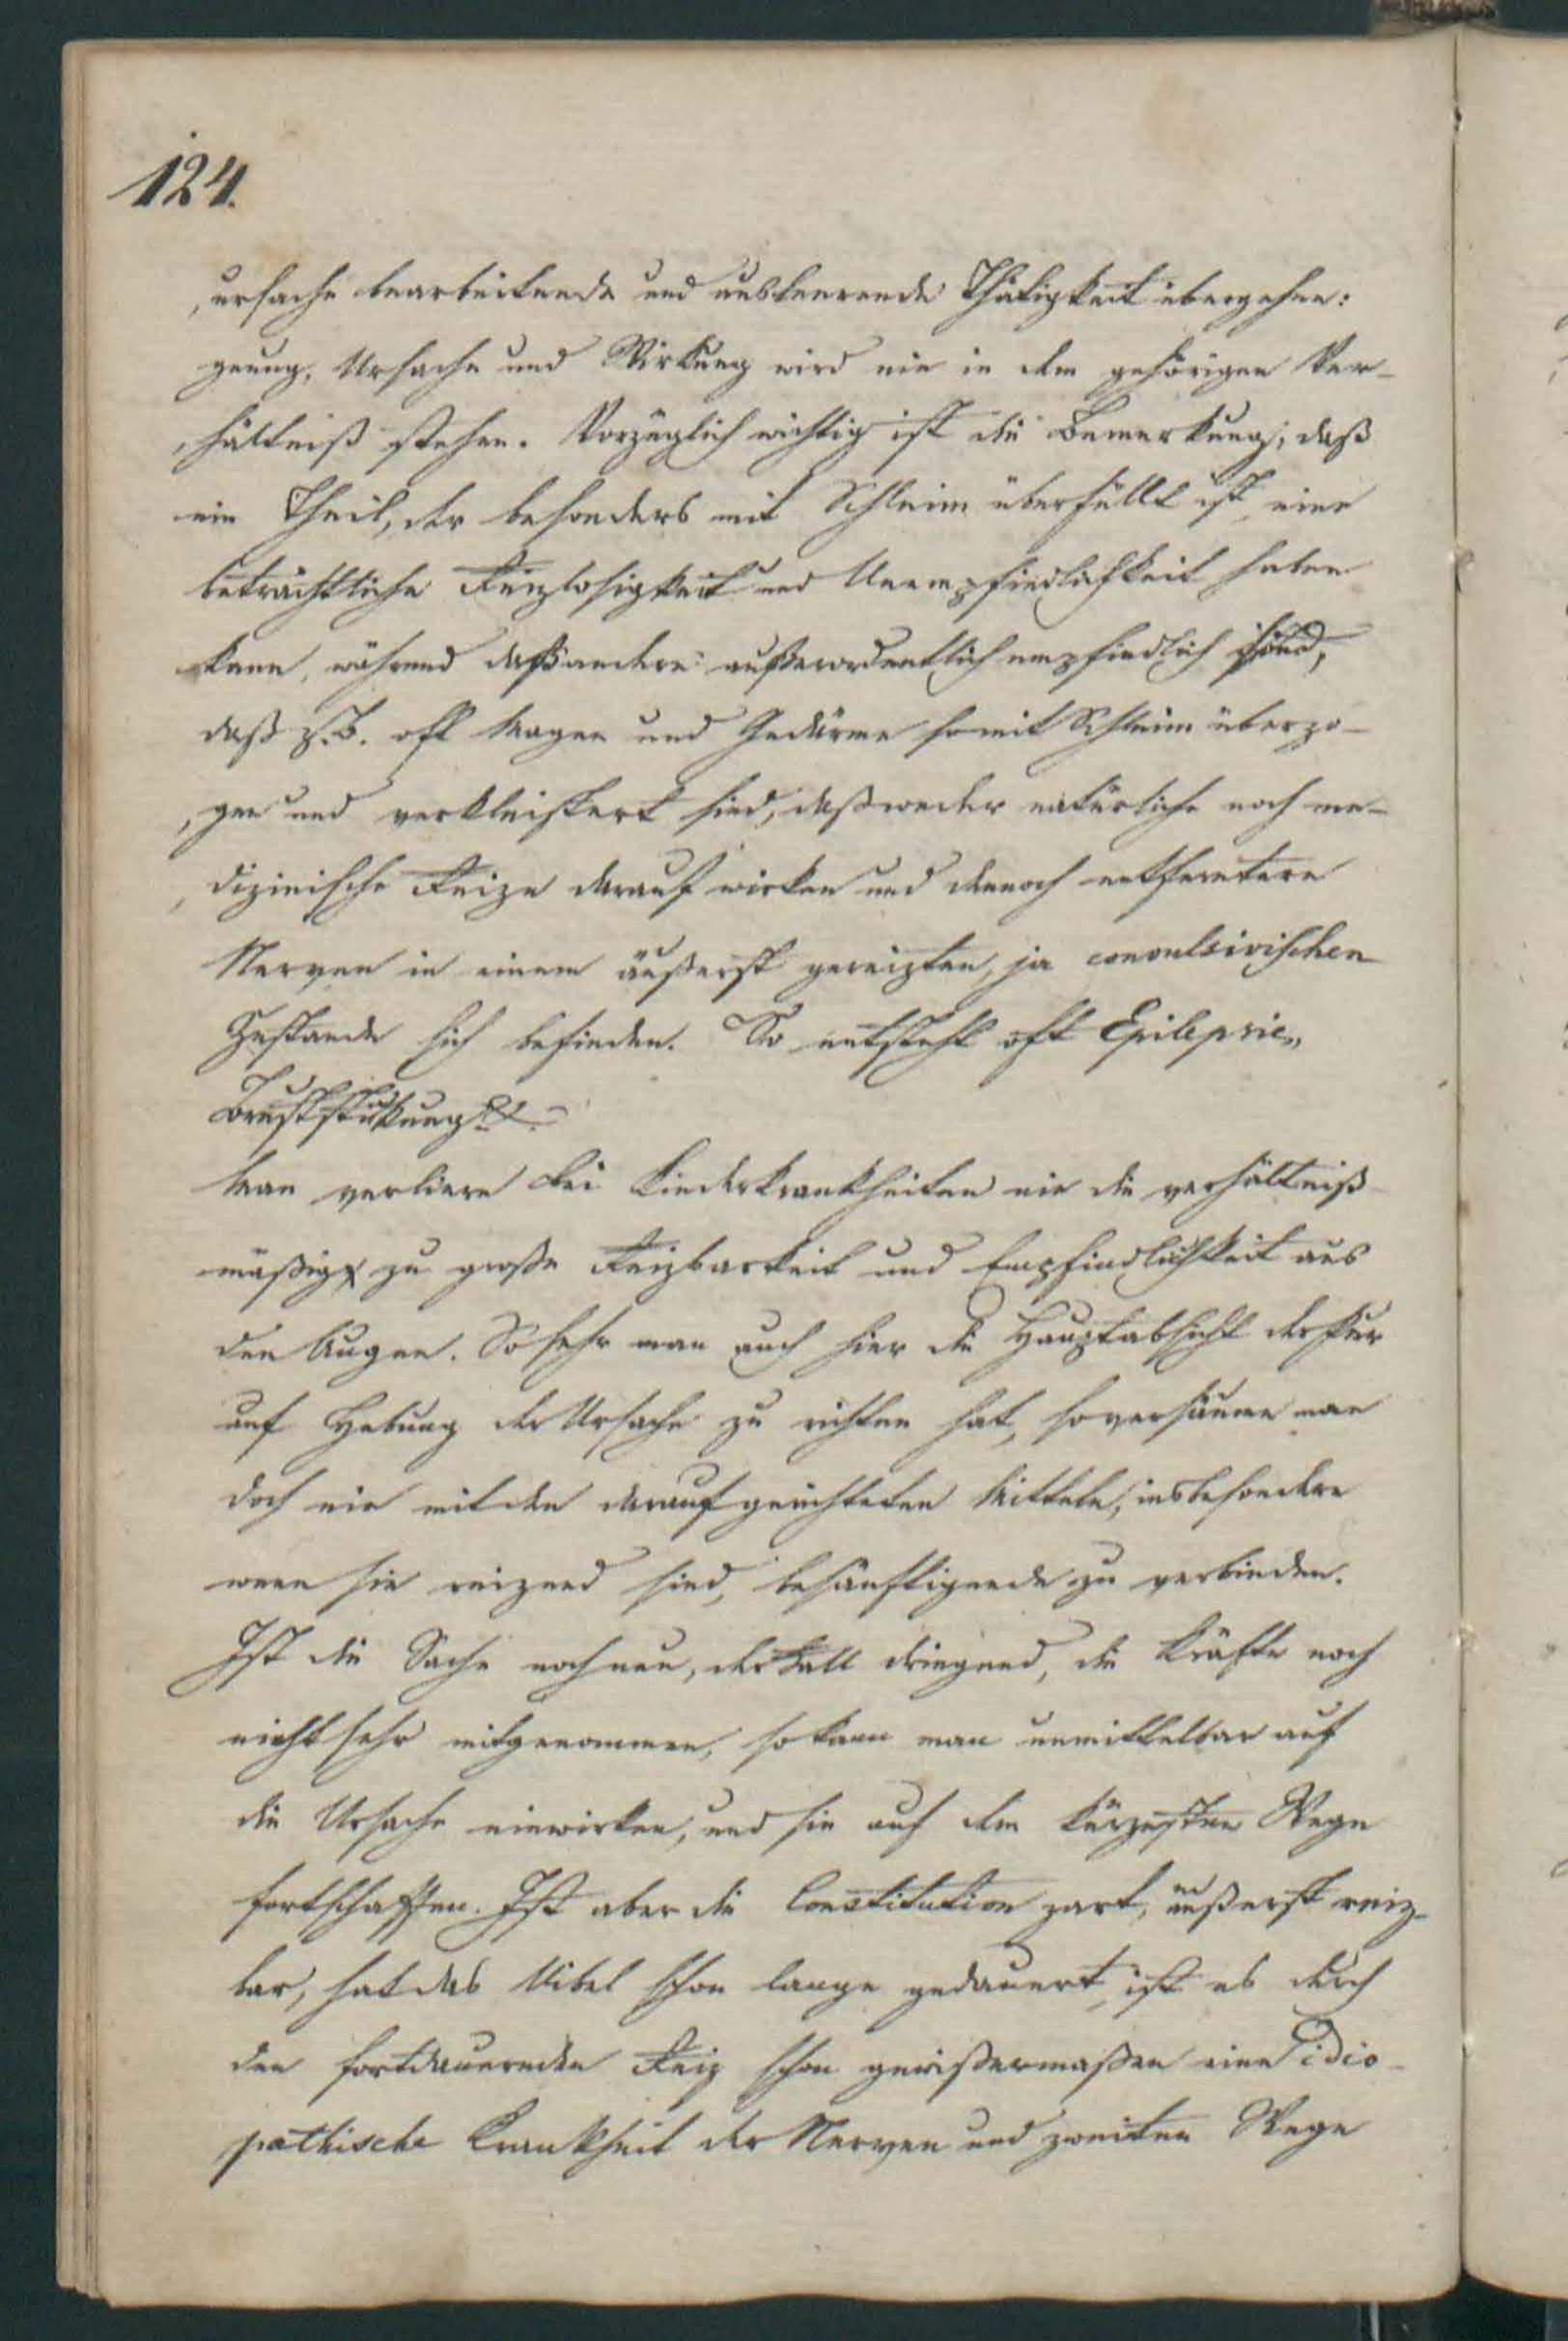 124.
ursache bearbeitende und ausleerende Thätigkeit übergehen:
genug, Ursache und Wirkung wird nie in dem gehörigen Ver-
hältniß stehen. Vorzüglich wichtig ist die Bemerkung, daß
ein Theil, der besonders mit Schleim überfüllt ist, eine
beträchtliche Reizlosigkeit und Unempfindlichkeit haben
kann, während daß andere außerordentlich empfindlich sind,
daß z.B. oft Magen und Gedärme so mit Schleim überzo-
gen und verkleistert sind, daß weder natürliche noch me-
dizinische Reize darauf wirken und dennoch entferntere
Nerven in einem äußerst gereizten, ja convulsivischen
Zustande sich befinden. So entsteht oft Epilepsie,
Man verliere bei Kinderkrankheiten nie die verhältniß
mäßig zu große Reizbarkeit und Empfindlichkeit aus
den Augen. So sehr man auch hier die Hauptabsicht der Kur
auf Hebung der Ursache zu richten hat, so versäume man
doch nie mit den darauf gerichteten Mitteln, insbesondere
wenn sie reizend sind, besänftigende zu verbinden.
Ist die Sache noch neu, der Fall dringend, die Kräfte noch
nicht sehr mitgenommen, so kann man unmittelbar auf
die Ursache einwirken, und sie auf dem kürzesten Wege
fortschaffen. Ist aber die Constitution zart, äußerst reiz-
bar, hat das Uibel schon lange gedauert, ist es durch
den fortdauernden Reiz schon gewißermaßen eine idio-
pathische Krankheit der Nerven und zweiten Wege